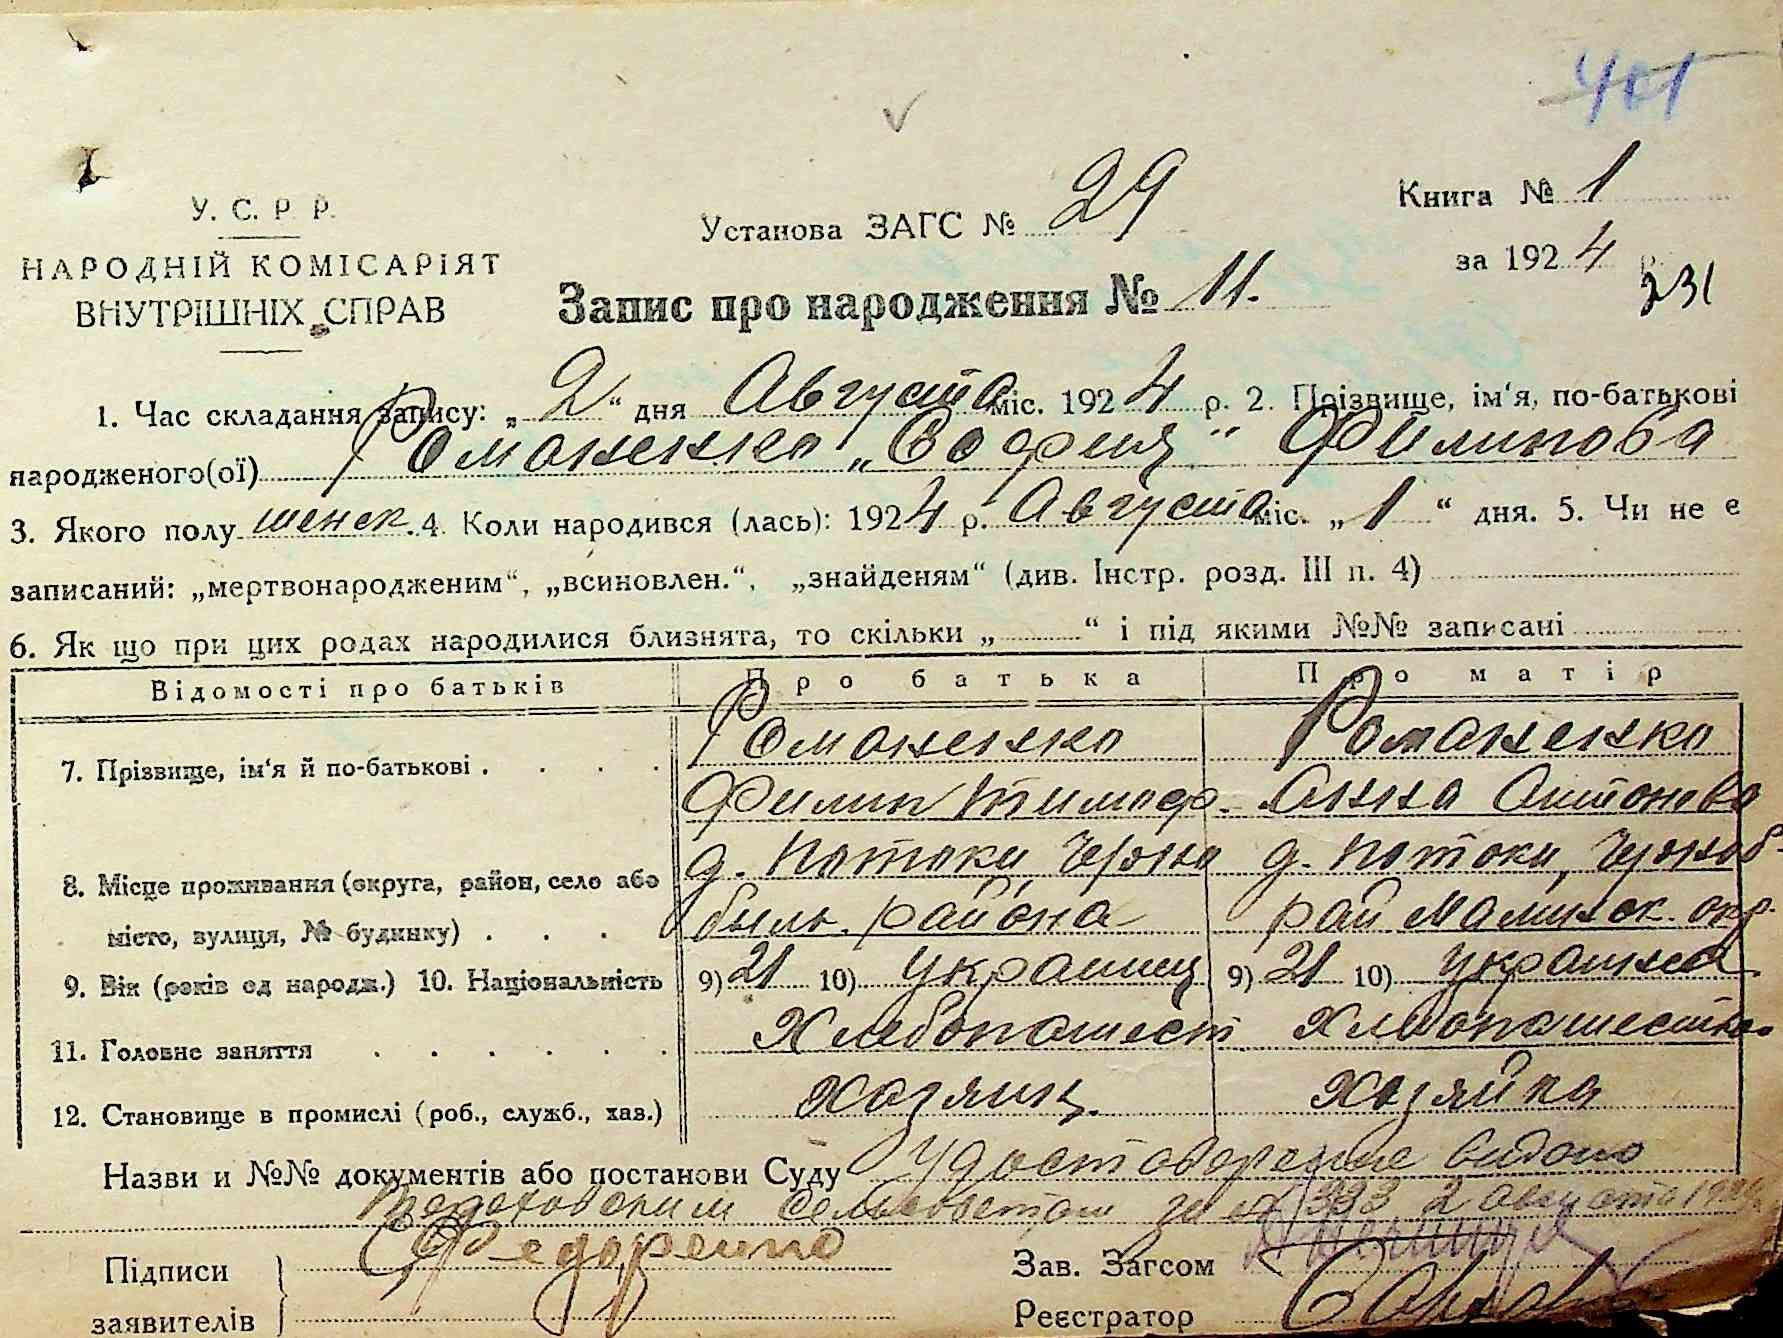 401
У. С. Р. Р.
НАРОДНІЙ КОМІСАРІЯТ
ВНУТРІШНІХ СПРАВ
Установа ЗАГС № 29
Книга № 1
за 1924 р.
231
Запис про народження № 11.
1. Час складання запису: „2“ дня Августа міс. 1924 р. 2. Прізвище, ім‘я, по-батькові
народженого(ої) Романенко „София“ Филипова
3. Якого полу женск. 4. Коли народився (лась): 1924 р. Августа міс. „1“ дня. 5. Чи не є
записаний: „мертвонародженим“, „всиновлен.“, „знайденям“ (див. Інстр. розд. III п. 4)
6. Як що при цих родах народилися близнята, то скільки „ “ і під якими №№ записані
Відомості про батьків Про батька Про матір
7. Прізвище, ім‘я й по-батькові . . . . Романенко Романенко
Филип Тимоф. Анна Антонова
8. Місце проживання (округа, район, село або д. Потоки, Черно д. Потоки, Черноб.
місто, вулиця, № будинку) . . . быль. района рай Малинск. окр.
9. Вік (років од народж.) 10. Національність 9) 21 10) Украинец 9) 21 10) Украинка
11. Головне заняття . . . . . . Хлебопашест Хлебопашество
12. Становище в промислі (роб., служб., хаз.) Хозяин. Хозяйка
Назви и №№ документів або постанови Суду Удостоверение видано
сельсоветом за № 333 2 августа 1924
Підписи Федоренко Зав. Загсом
заявителів Реєстратор